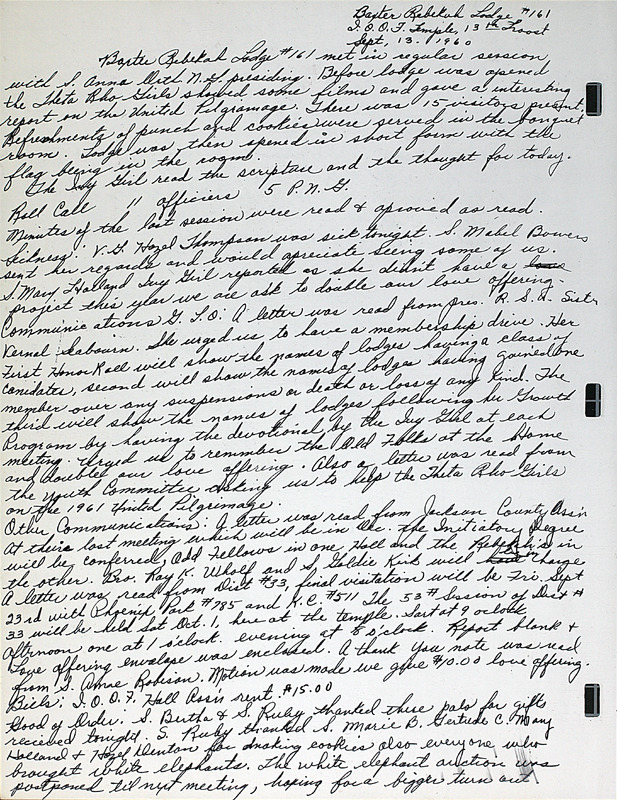 Baxter Rebekah Lodge #161
I.O.O.F. Temple, 13th & Troost
Sept, 13. 1960
Baxter Rebekah Lodge #161 met in regular session
with S. Anna Orth N.G. presiding. Before lodge was opened
the Theta Rho Girls showed some films and gave a interesting
report on the United Pilgramage. There was 15 visitors present.
Refreshments of punch and cookies were served in the banquet
room. Lodge was then opened in short form with the
flag being in the room.
The Ivy Girl read the scripture and the thought for today.
Roll Call 11 officiers 5 P.N.G.
Minutes of the last session were read & aproved as read.
Sickness: V.G. Hazel Thompson was sick tonight. S. Mabel Bowers
sent her regards and would apreciate seeing some of us.
S. Mary Holland Ivy Girl reported as she didn't have a love
project this year we are ask to double our love offering.
Communications G.L.O: A letter was read from pres. R.S.A. Sister
Vernal Seabourn. She urged us to have a membership drive. Her
First Honor Roll will show the names of lodges having a class of
canidates, second will show the names of lodges having gained one
member over any suspensions or death or loss of any kind. The
third will show the names of lodges following her Growth
Program by having the devotional by the Ivy Girl at each
meeting. Urged us to remember the Old Folks at the Home
and double our love offering. Also a letter was read from
the Youth Committee asking us to help the Theta Rho Girls
on the 1961 United Pilgrimage.
Other Communications: A letter was read from Jackson County Ass'n
At there last meeting which will be in Dec. the Initiatory Degree
will be conferred, Odd Fellows in one Hall and the Rebekah's in
the other. Bro. Ray K. Wholf and S. Goldie Kirk will have charge
A letter was read from Dist #33, final visitation will be Fri. Sept
23rd with Phoenix Park #795 and K.C. #511 The 53rd Session of Dist #
33 will be held Sat Oct. 1, here at the temple. Start at 9 oclock
afternoon one at 1 o'clock. evening at 8 o'clock. Report blank &
Love offering envelope was enclosed. A thank you note was read
from S. Anne Robison. Motion was made we give $10.00 love offering.
Bills: I.O.O.F. Hall Ass'n rent. $15.00
Good of Order. S. Bertha & S. Ruby thanked these pals for gifts
recieved tonight. S. Ruby thanked S. Marie B. Gertrude C. Mary
Holland & Hazel Denton for making cookies also everyone who
brought white elephants. The white elephant auction was
postponed til next meeting, hoping for a bigger turn out